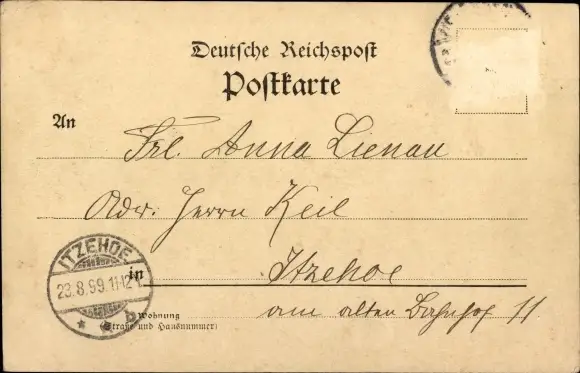 Deutsche Reichspost
Postkarte
An
Frl. Anna Lienau
Adr. Herrn Keil
in Itzehoe
am alten Bahnhof 11
Wohnung
(Straße und Hausnummer)
ITZEHOE
23.8.99.11-12V
* b